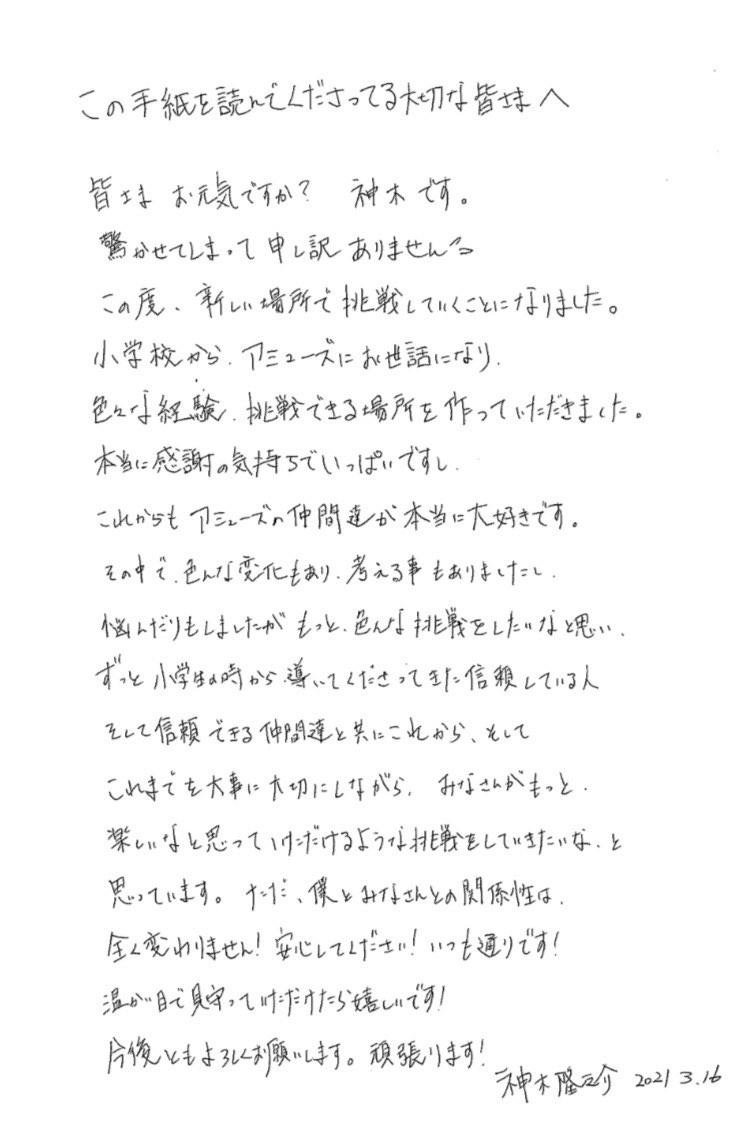 この手紙を読んでくださってる大切な皆さまへ
皆さま お元気ですか? 神木です。
驚かせてしまって申し訳ありません
この度、新しい場所で挑戦していくことになりました。
小学校から、アミューズにお世話になり、
色々な経験、挑戦できる場所を作っていただきました。
本当に感謝の気持ちでいっぱいですし、
これからもアミューズの仲間達が本当に大好きです。
その中で、色んな変化もあり、考える事もありましたし、
悩んだりもしましたが もっと、色んな挑戦をしたいなと思い、
ずっと小学生の時から、導いてくださってきた信頼している人
そして信頼できる仲間達と共にこれから、そして
これまでを大事に大切にしながら、みなさんがもっと、
楽しいなと思っていただけるような挑戦をしていきたいな、と
思っています。ただ、僕とみなさんとの関係性は、
全く変わりません!安心してください!いつも通りです!
温か目で見守っていただけたら嬉しいです!
今後ともよろしくお願いします。頑張ります!
神木隆之介 2021 3.16